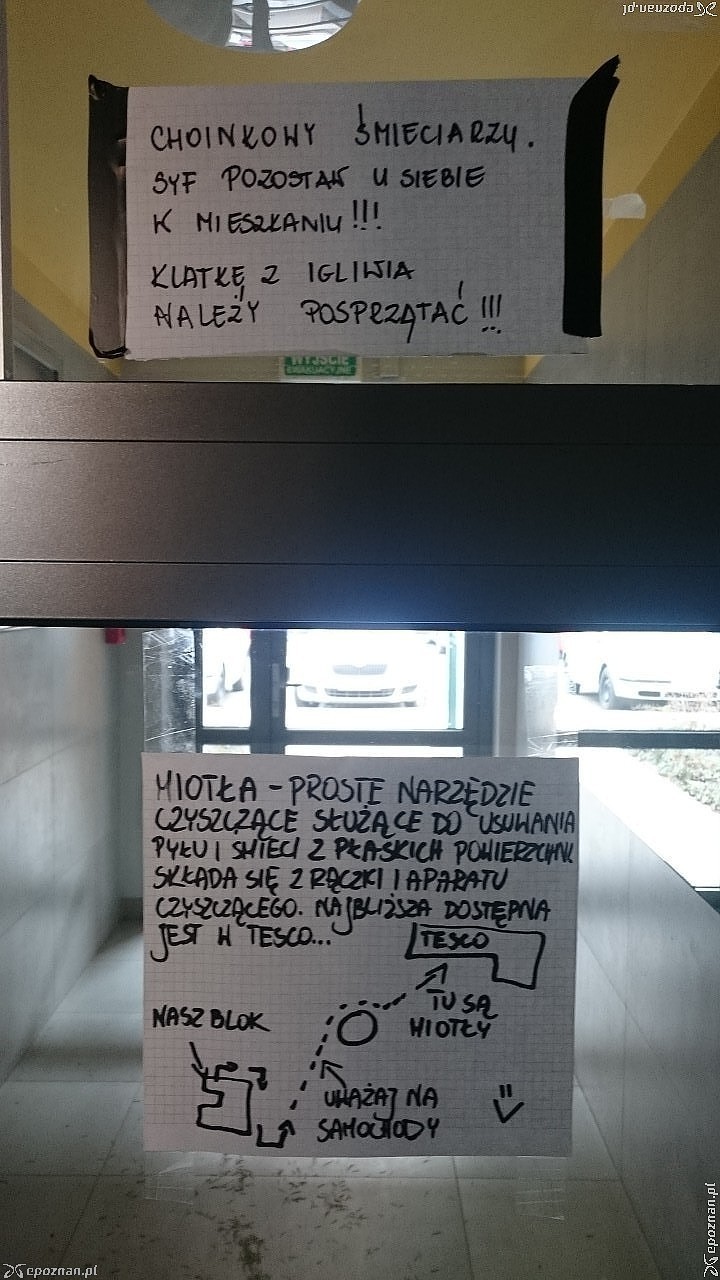 epoznan.pl
CHOINKOWY ŚMIECIARZU.
SYF POZOSTAW U SIEBIE
W MIESZKANIU!!!
KLATKĘ Z IGLIWIA
NALEŻY POSPRZĄTAĆ!!!
WYJŚCIE
EWAKUACYJNE
MIOTŁA - PROSTE NARZĘDZIE
CZYSZCZĄCE SŁUŻĄCE DO USUWANIA
PYŁU I ŚMIECI Z PŁASKICH POWIERZCHNI.
SKŁADA SIĘ Z RĄCZKI I APARATU
CZYSZCZĄCEGO. NAJBLIŻSZA DOSTĘPNA
JEST W TESCO...
TESCO
TU SĄ
MIOTŁY
NASZ BLOK
UWAŻAJ NA
SAMOCHODY
epoznan.pl
epoznan.pl